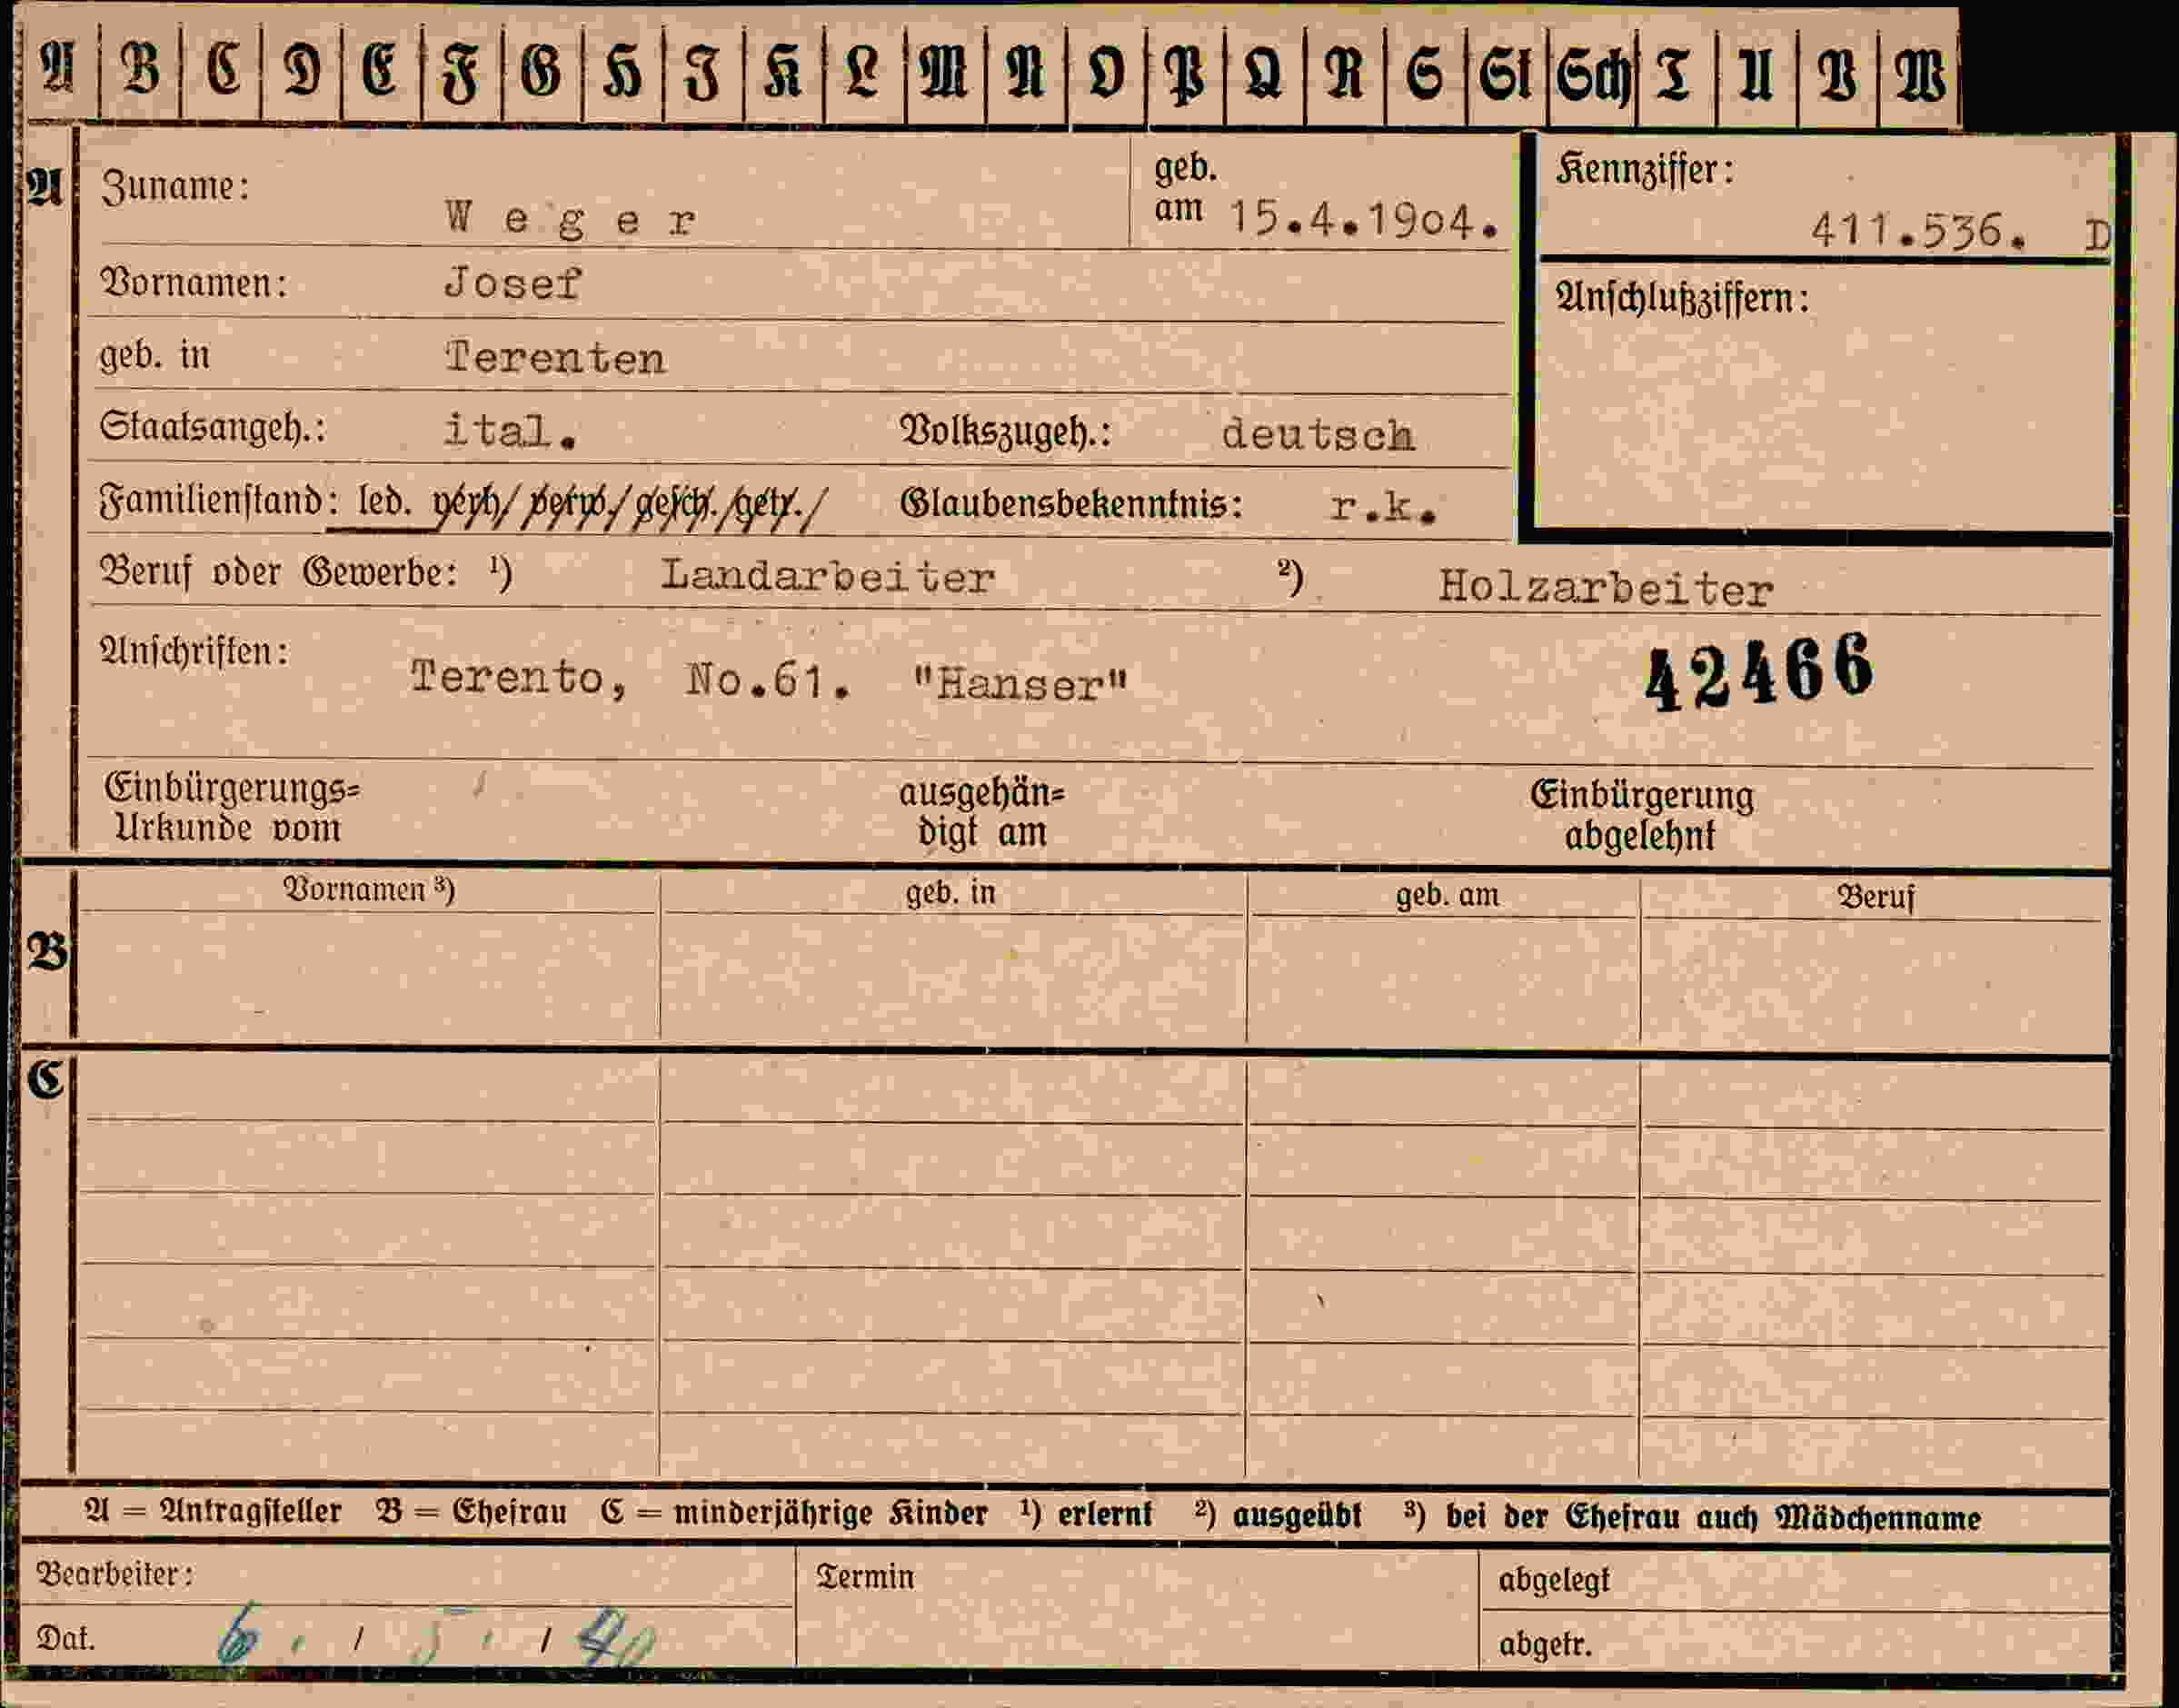 A B C D E F G H I K L M N O P Q R S St Sch T U V W
A Zuname: W e g e r geb. am 15.4.19o4. Kennziffer: 411.536. D
Vornamen: Josef Anschlußziffern:
geb. in Terenten
Staatsangeh.: ital. Volkszugeh.: deutsch
Familienstand: led. verh/ verw./ gesch./getr./ Glaubensbekenntnis: r.k.
Beruf oder Gewerbe: ¹) Landarbeiter ²) Holzarbeiter
Anschriften: Terento, No.61. "Hanser" 42466
Einbürgerungs= ausgehän= Einbürgerung
Urkunde vom digt am abgelehnt
Vornamen ³) geb. in geb. am Beruf
B
C
A = Antragsteller B = Ehefrau C = minderjährige Kinder ¹) erlernt ²) ausgeübt ³) bei der Ehefrau auch Mädchenname
Bearbeiter: Termin abgelegt
Dat. 6. / 5. / 40 abgetr.